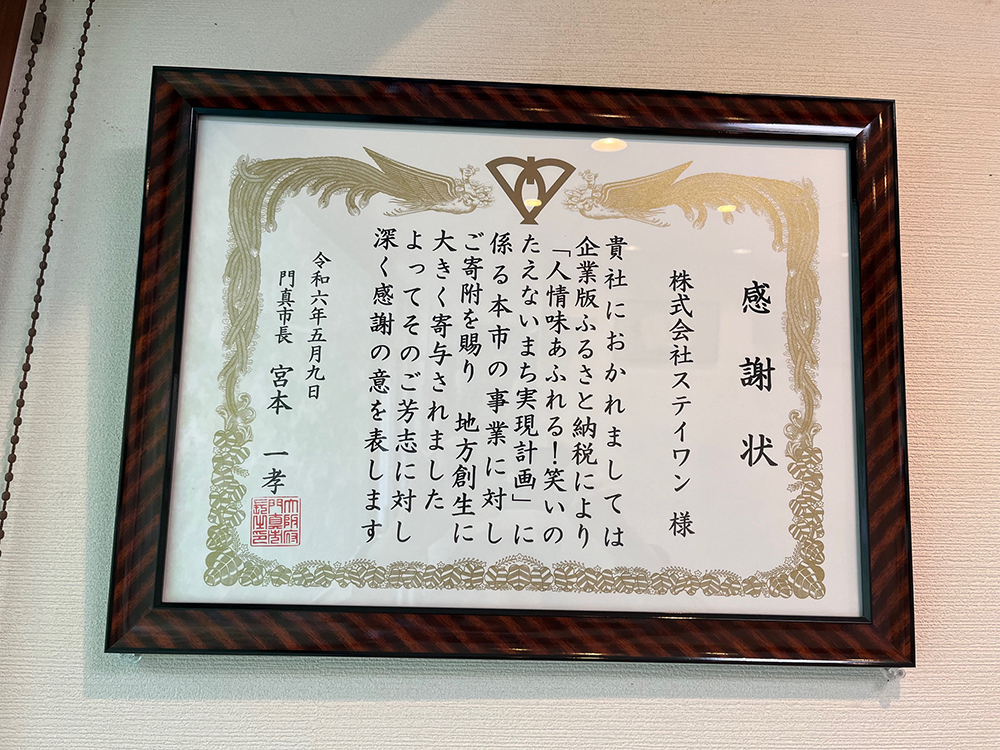 感謝状
株式会社ステイワン 様
貴社におかれましては
企業版ふるさと納税により
「人情味あふれる！笑いの
たえないまち実現計画」に
係る本市の事業に対し
ご寄附を賜り 地方創生に
大きく寄与されました
よってそのご芳志に対し
深く感謝の意を表します
令和六年五月九日
門真市長 宮本 一孝
大阪府
門真市
長之印